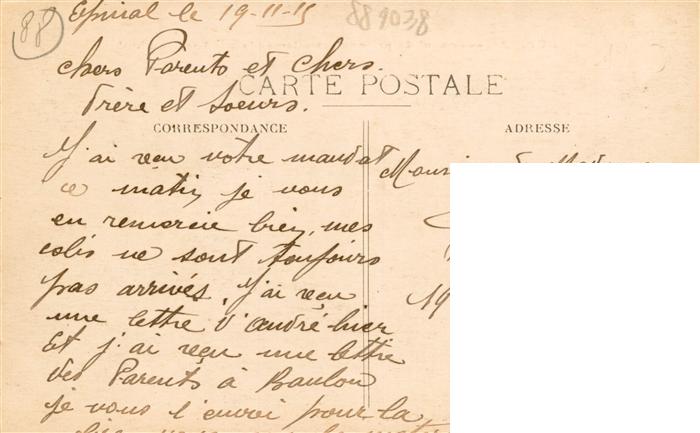 88
Epinal le 19-11-15
889038
Chers Parents et Chers.
CARTE POSTALE
Frère et Soeurs.
CORRESPONDANCE
ADRESSE
J'ai reçu votre mandat
ce matin, je vous
en remercie bien, mes
colis ne sont toujours
pas arrivés, J'ai reçu
une lettre d'andré hier
Et j'ai reçu une lettre
des Parents à Baulon
je vous l'envoi pour la
19